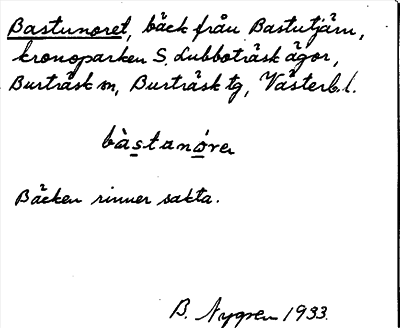 Bastunoret, bäck från Bastutjärn,
kronoparken S. Lubboträsk ägor,
Burträsk sn, Burträsk tg, Västerb. l.
bàstanórer
Bäcken rinner sakta.
B. Nygren 1933.